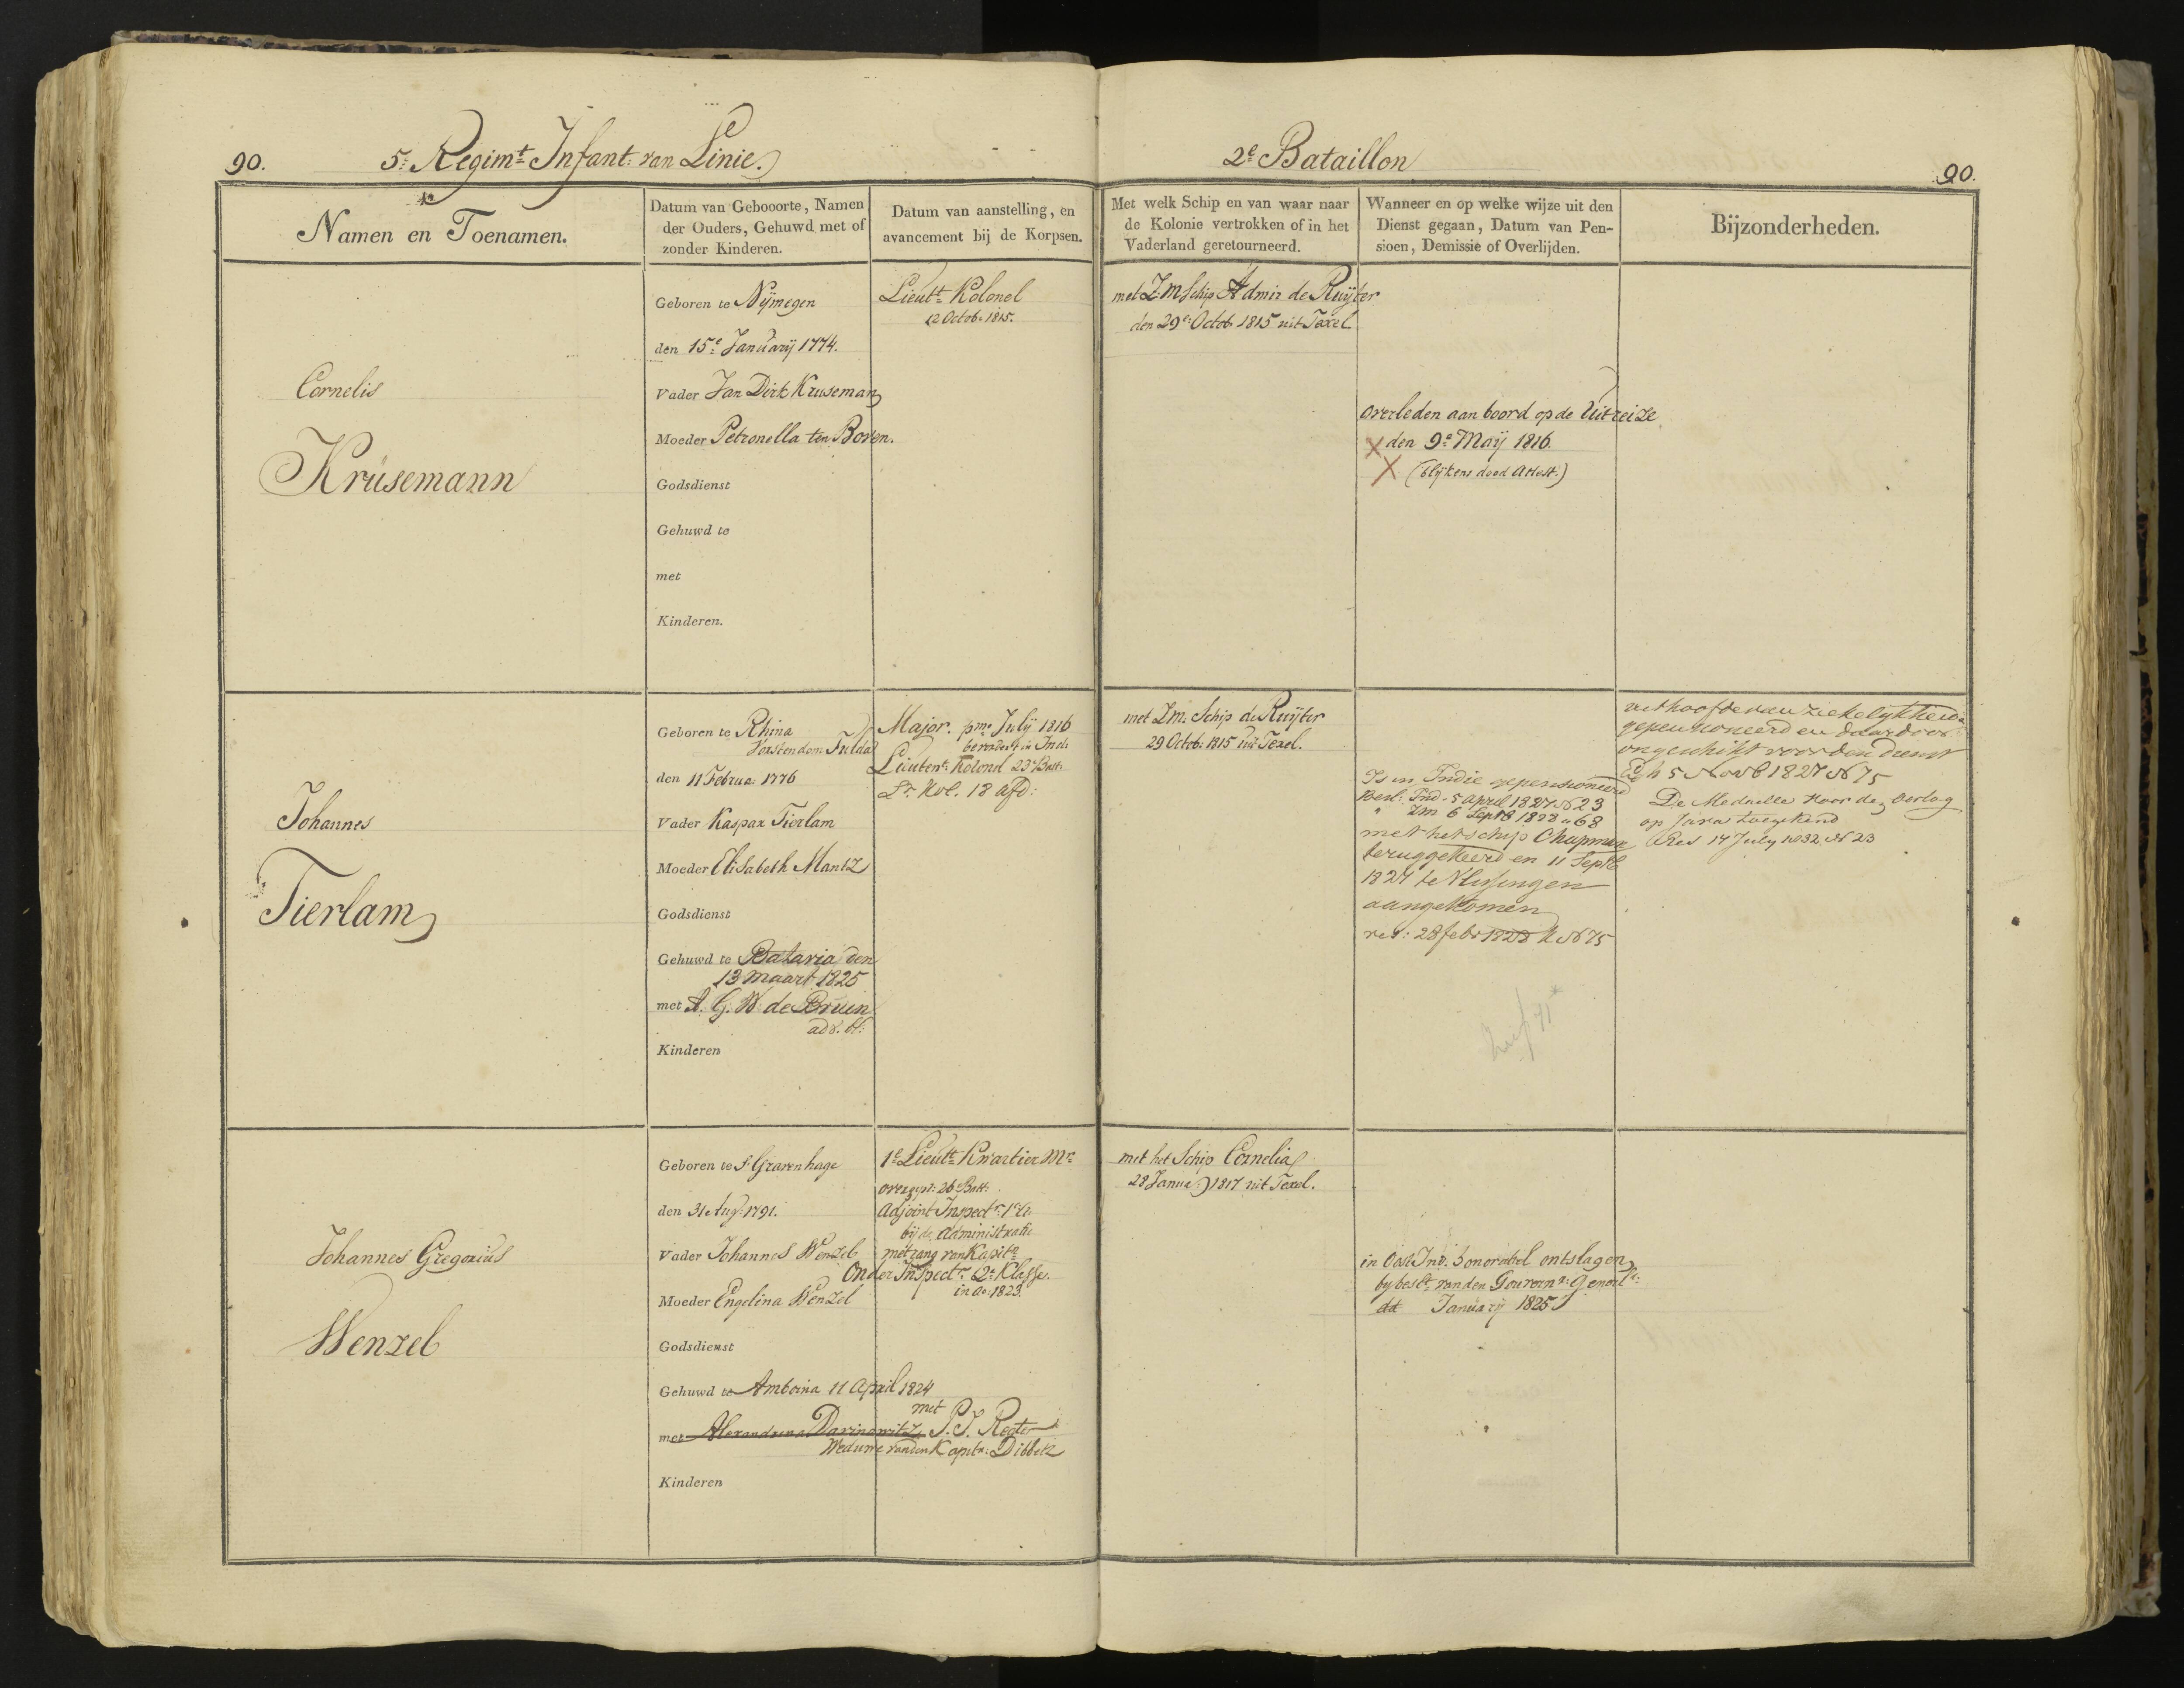 90.
5e Regimt Infant: van Linie.
2e Bataillon
90.
Namen en Toenamen.
Datum van Gebooorte, Namen
der Ouders, Gehuwd met of
zonder Kinderen.
Datum van aanstelling, en
avancement bij de Korpsen.
Met welk Schip en van waar naar
de Kolonie vertrokken of in het
Vaderland geretourneerd.
Wanneer en op welke wijze uit den
Dienst gegaan, Datum van Pen-
sioen, Demissie of Overlijden.
Bijzonderheden.
Cornelis
Krüsemann
Geboren te Nijmegen
den 15e January 1774.
Vader Jan Dirk Kruseman
Moeder Petronella ten Boven.
Godsdienst
Gehuwd te
met
Kinderen.
Lieutt Kolonel
12 Octob. 1815.
met Z.M Schip Admir de Ruijter
den 29e Octob 1815 uit Texel
overleden aan boord op de Uitreize
den 9e Maij 1816
(blijkens dood Attest:)
Johannes
Tierlam
Geboren te Rhina
Vorstendom Fulda
den 11 Februa 1776
Vader Kaspar Tierlam
Moeder Elisabeth Mantz
Godsdienst
Gehuwd te Batavia den
13 Maart 1825
met A. G. W. de Bruin
Kinderen
Major. pmo July 1816
bevordert in Indi
Lieutent Kolonel 23e Batt:
Lt. Kol. 18 afd:
met Zm. Schip de Ruijter
29 Octob: 1815 uit Texel.
Is in Indie gepensioneerd
Besl: Ind. 5 April 1827 No 23
" Zm 6 Septb 1828 " 68
met het schip Chapman
teruggekeerd en 11 Septb
1827 te Vlissingen
aangekomen
res: 28 feb 1828 No 75
uit hoofde van ziekelijkheid
gepensioneerd en daardoor
ongeschikt voor den dienst
5 Novb 1827 No 75
De Medaille voor de Oorlog
op Java toegekend
Res 14 July 1832 No 23
Johannes Gregorius
Wenzel
Geboren te s Gravenhage
den 31 Aug. 1791.
Vader Johannes Wenzel
Moeder Engelina Wenzel
Godsdienst
Gehuwd te Amboina 11 April 1824
met
met Alexandrina Davinawitz P. J. Regter
Weduwe van den Kapitn: Dibbetz
Kinderen
1e Lieutt Kwartier Mr
overgepl: 26 Batt:
Adjoint Inspectr 1e Cl
bij de Administratie
met rang van Kapite
Onder Inspectr 2e Klasse.
in ao. 1823.
met het Schip Cornelia
28 Janua: 1817 uit Texel.
in Oost Ind: honorabel ontslagen
by beslt van den Gouvern.r Generl
dd January 1825